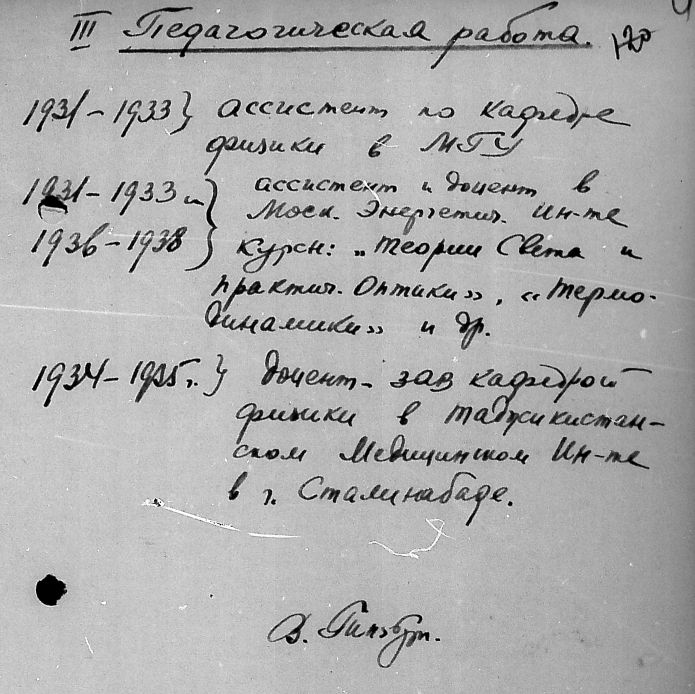 III Педагогическая работа.
1931–1933} ассистент по кафедре
физики в МГУ
1931–1933 и } ассистент и доцент в
Моск. Энергетич. Ин-те
1936–1938 } курсы: „Теории Света и
практич. Оптики», «Термо-
динамики» и др.
1934–1935 г. } доцент- зав кафедрой
физики в Таджикистан-
ском Медицинском Ин-те
в г. Сталинабаде.
В. Гинзбург.